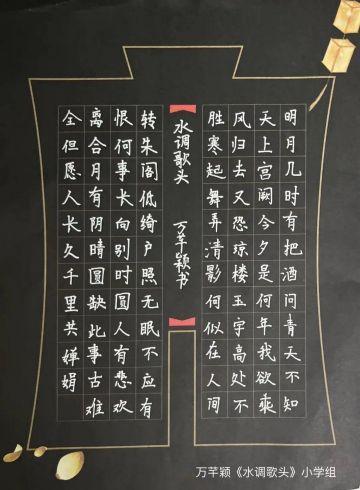 明月几时有把酒问青天不知
天上宫阙今夕是何年我欲乘
风归去又恐琼楼玉宇高处不
胜寒起舞弄清影何似在人间
水调歌头 万芊颖书
转朱阁低绮户照无眠不应有
恨何事长向别时圆人有悲欢
离合月有阴晴圆缺此事古难
全但愿人长久千里共婵娟
万芊颖《水调歌头》小学组